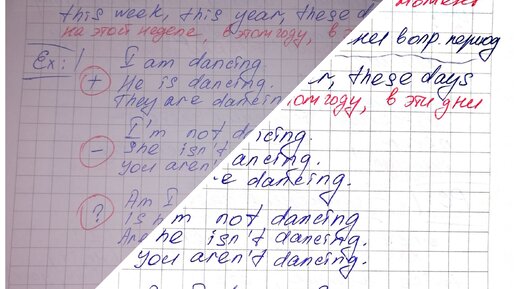 this week, this year, these d
на этой неделе, в этом году, в э
Ex: I am dancing
+ He is dancing.
They are dancin
I'm not d
– She isn't
You aren't
? Am I
Is
Are
момент
вопр. период
r, these days
том году, в эти дни
cing.
ancing.
e dancing.
'm not dancing
he isn't dancing.
You aren't dancing.